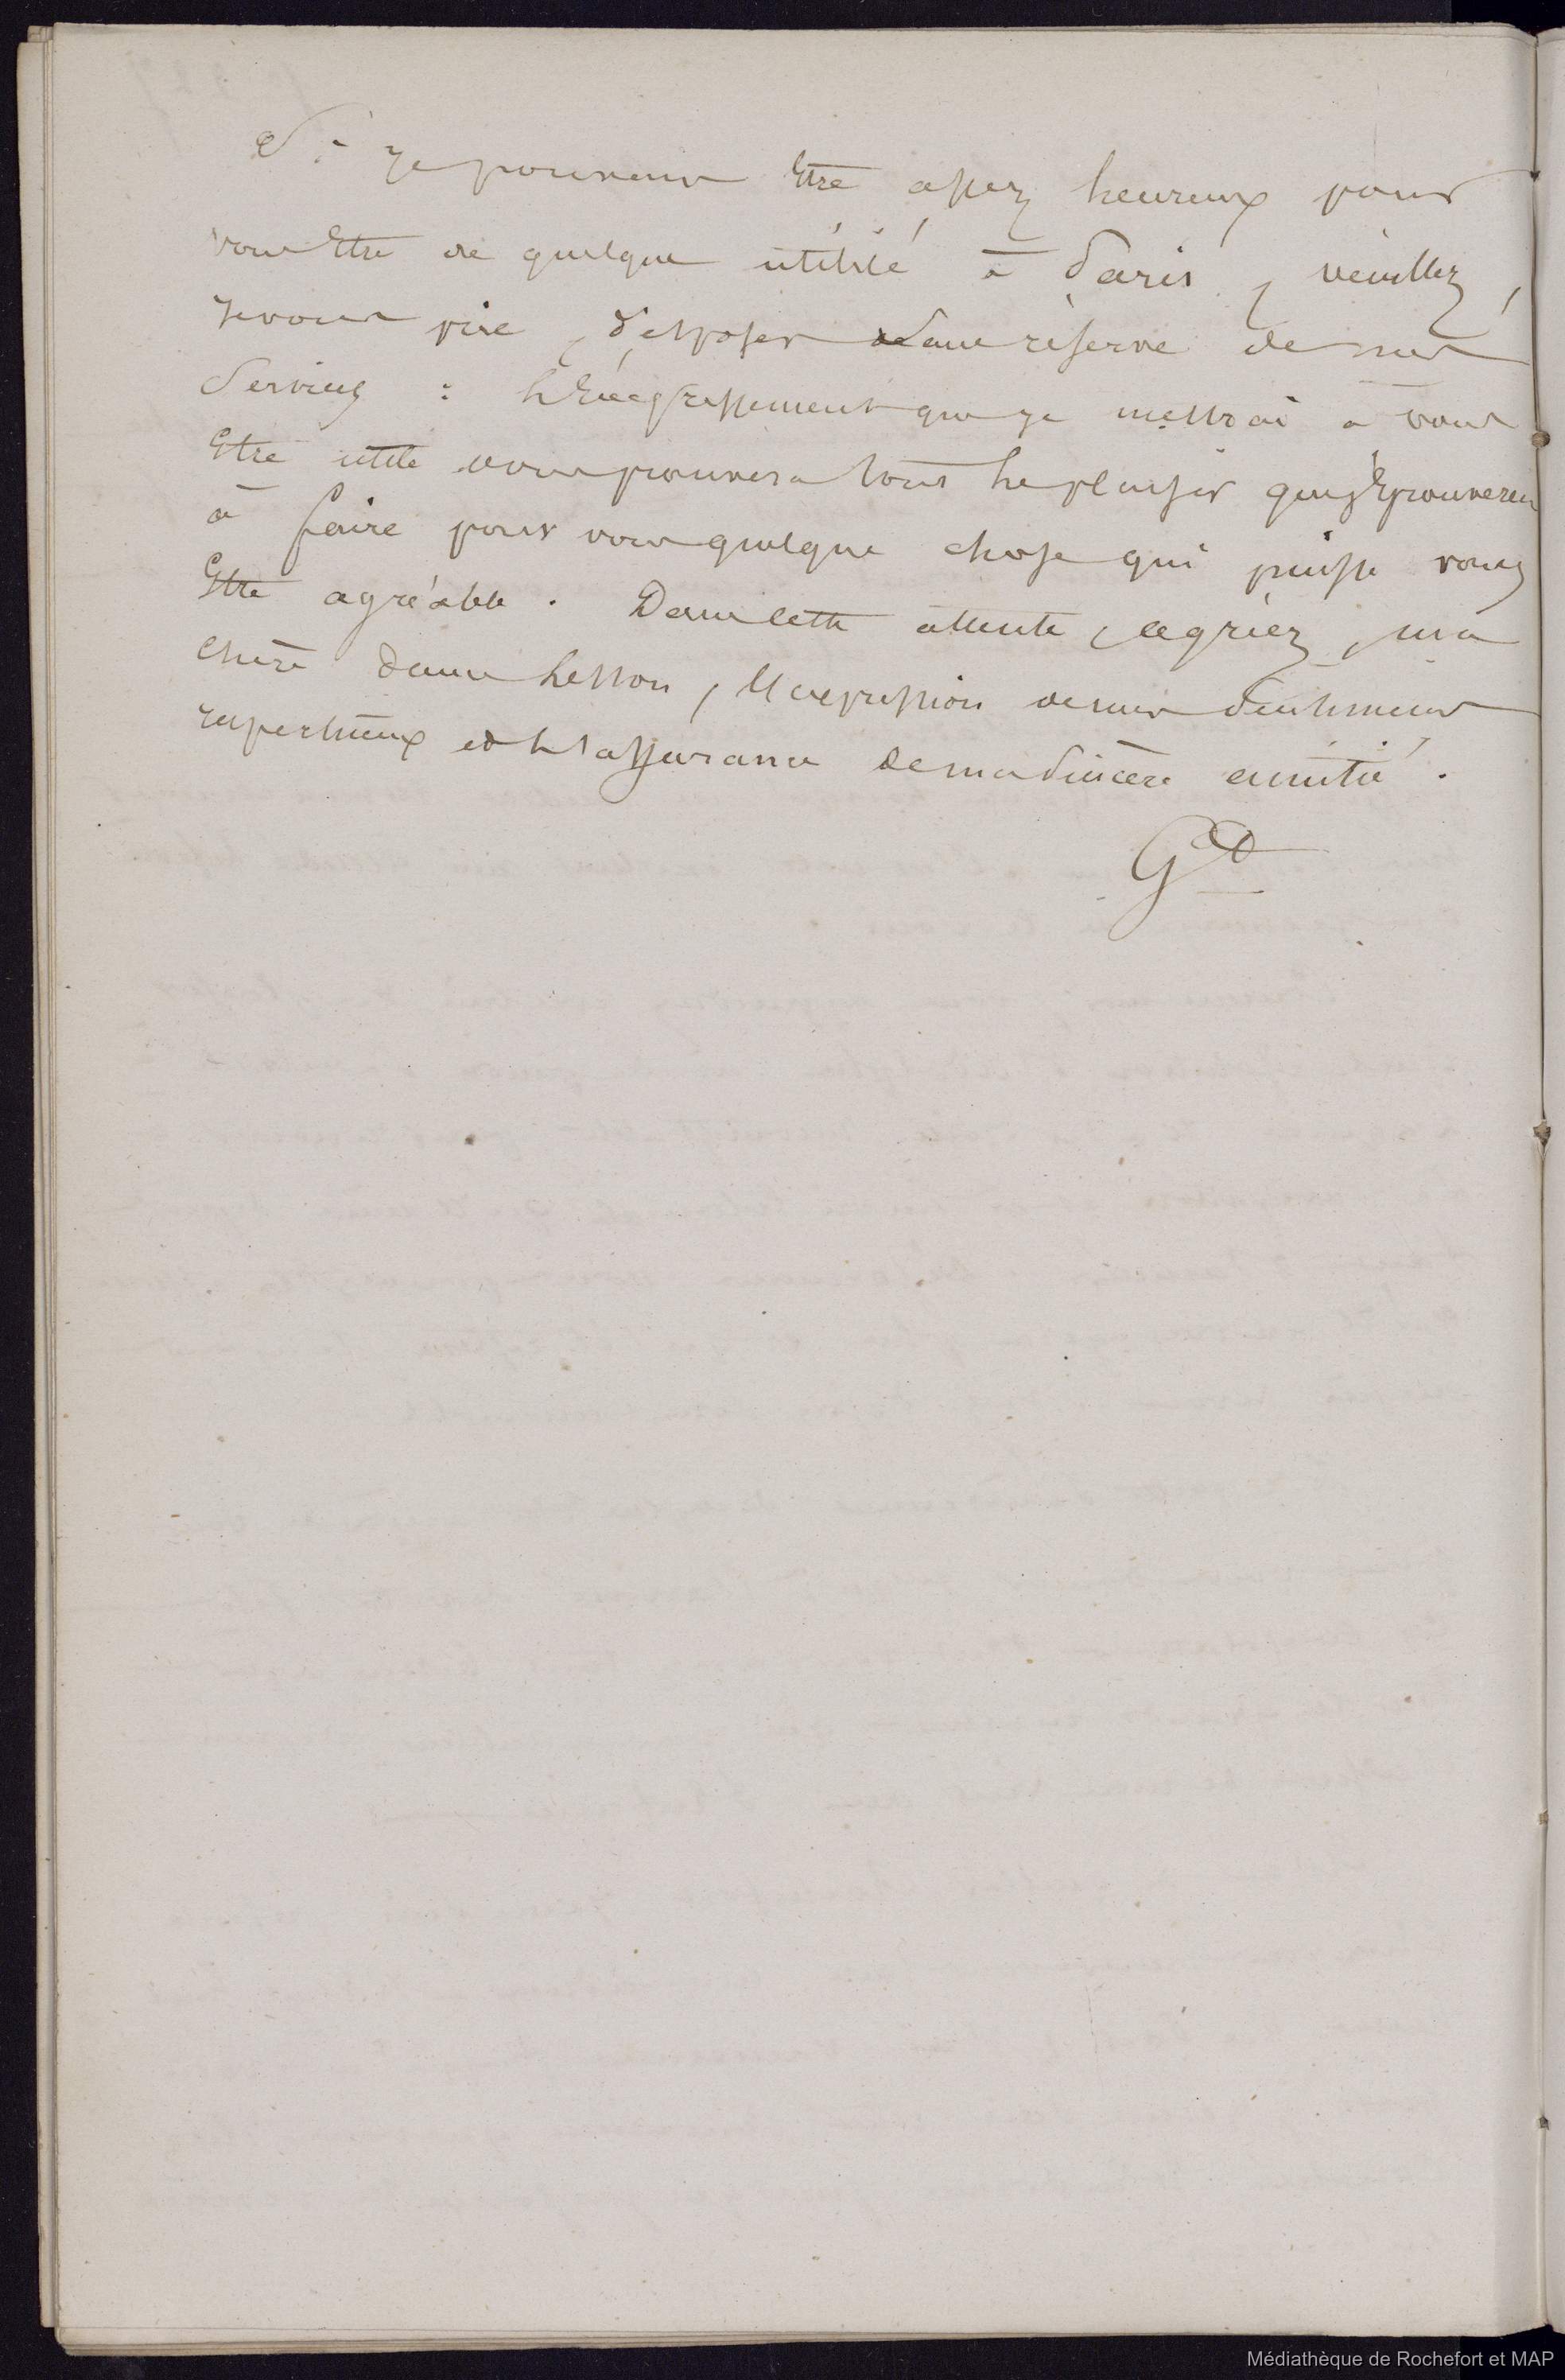 Si je pouvais être assez heureux pour
vous être de quelque utilité à Paris, veuillez,
je vous prie, disposer sans réserve de mes
services : l'empressement que je mettrai à vous
être utile vous prouvera tout le plaisir que j'éprouverai
à faire pour vous quelque chose qui puisse vous
être agréable. Dans cette attente, agréez, ma
chère dame Lesson, l'expression de mes sentiments
respectueux et l'assurance de ma sincère amitié.
Médiathèque de Rochefort et MAP